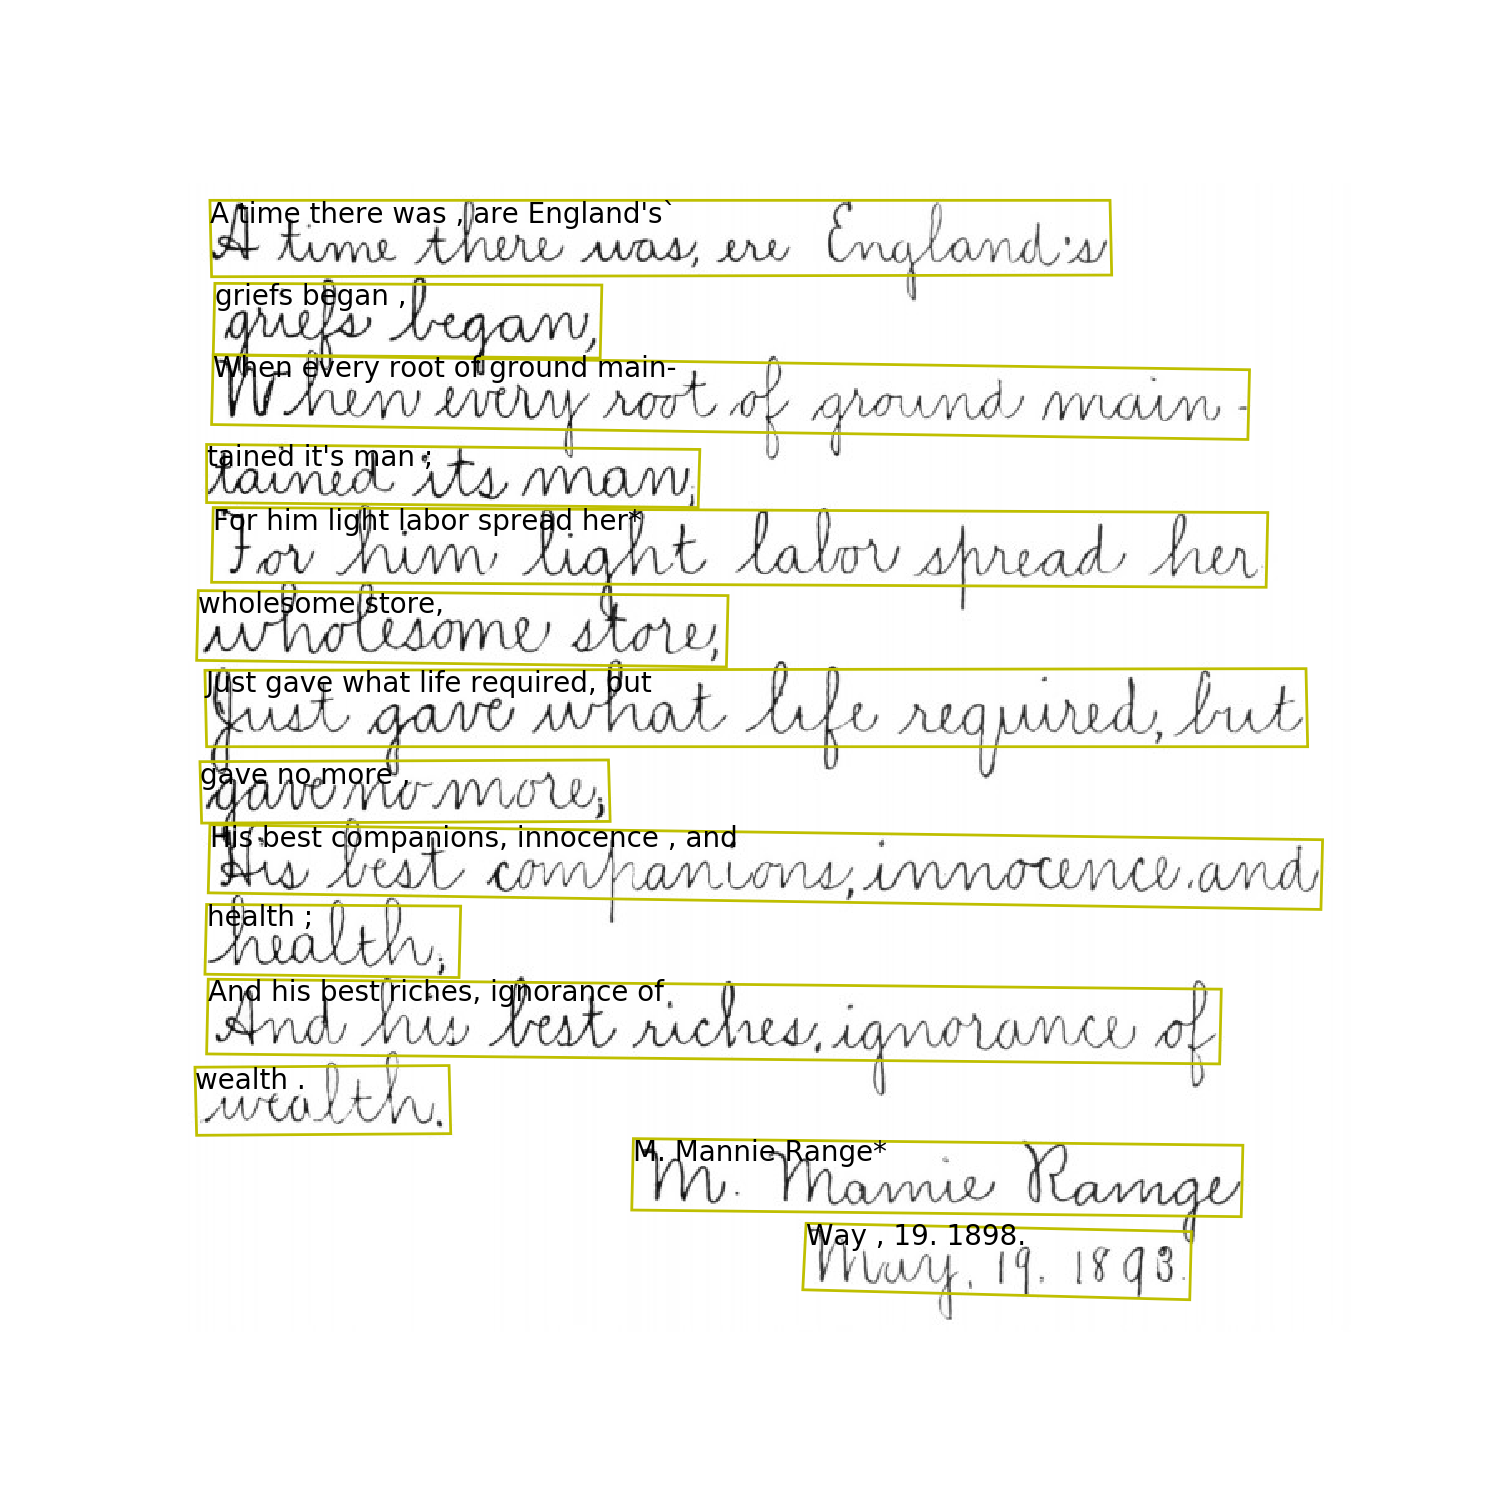 A time there was , are England's`
A time there was, ere England's
griefs began ,
griefs began,
When every root of ground main-
When every root of ground main-
tained it's man ;
tained its man;
For him light labor spread her*
For him light labor spread her
wholesome store,
wholesome store,
Just gave what life required, but
Just gave what life required, but
gave no more ,
gave no more;
His best companions, innocence , and
His best companions, innocence.and
health ;
health;
And his best riches, ignorance of
And his best riches, ignorance of
wealth .
wealth.
M. Mannie Range*
M. Mamie Ramge
Way , 19. 1898.
May, 19. 1893.